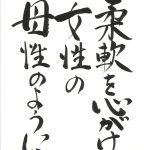 柔軟を心がけ
女性の
母性のように